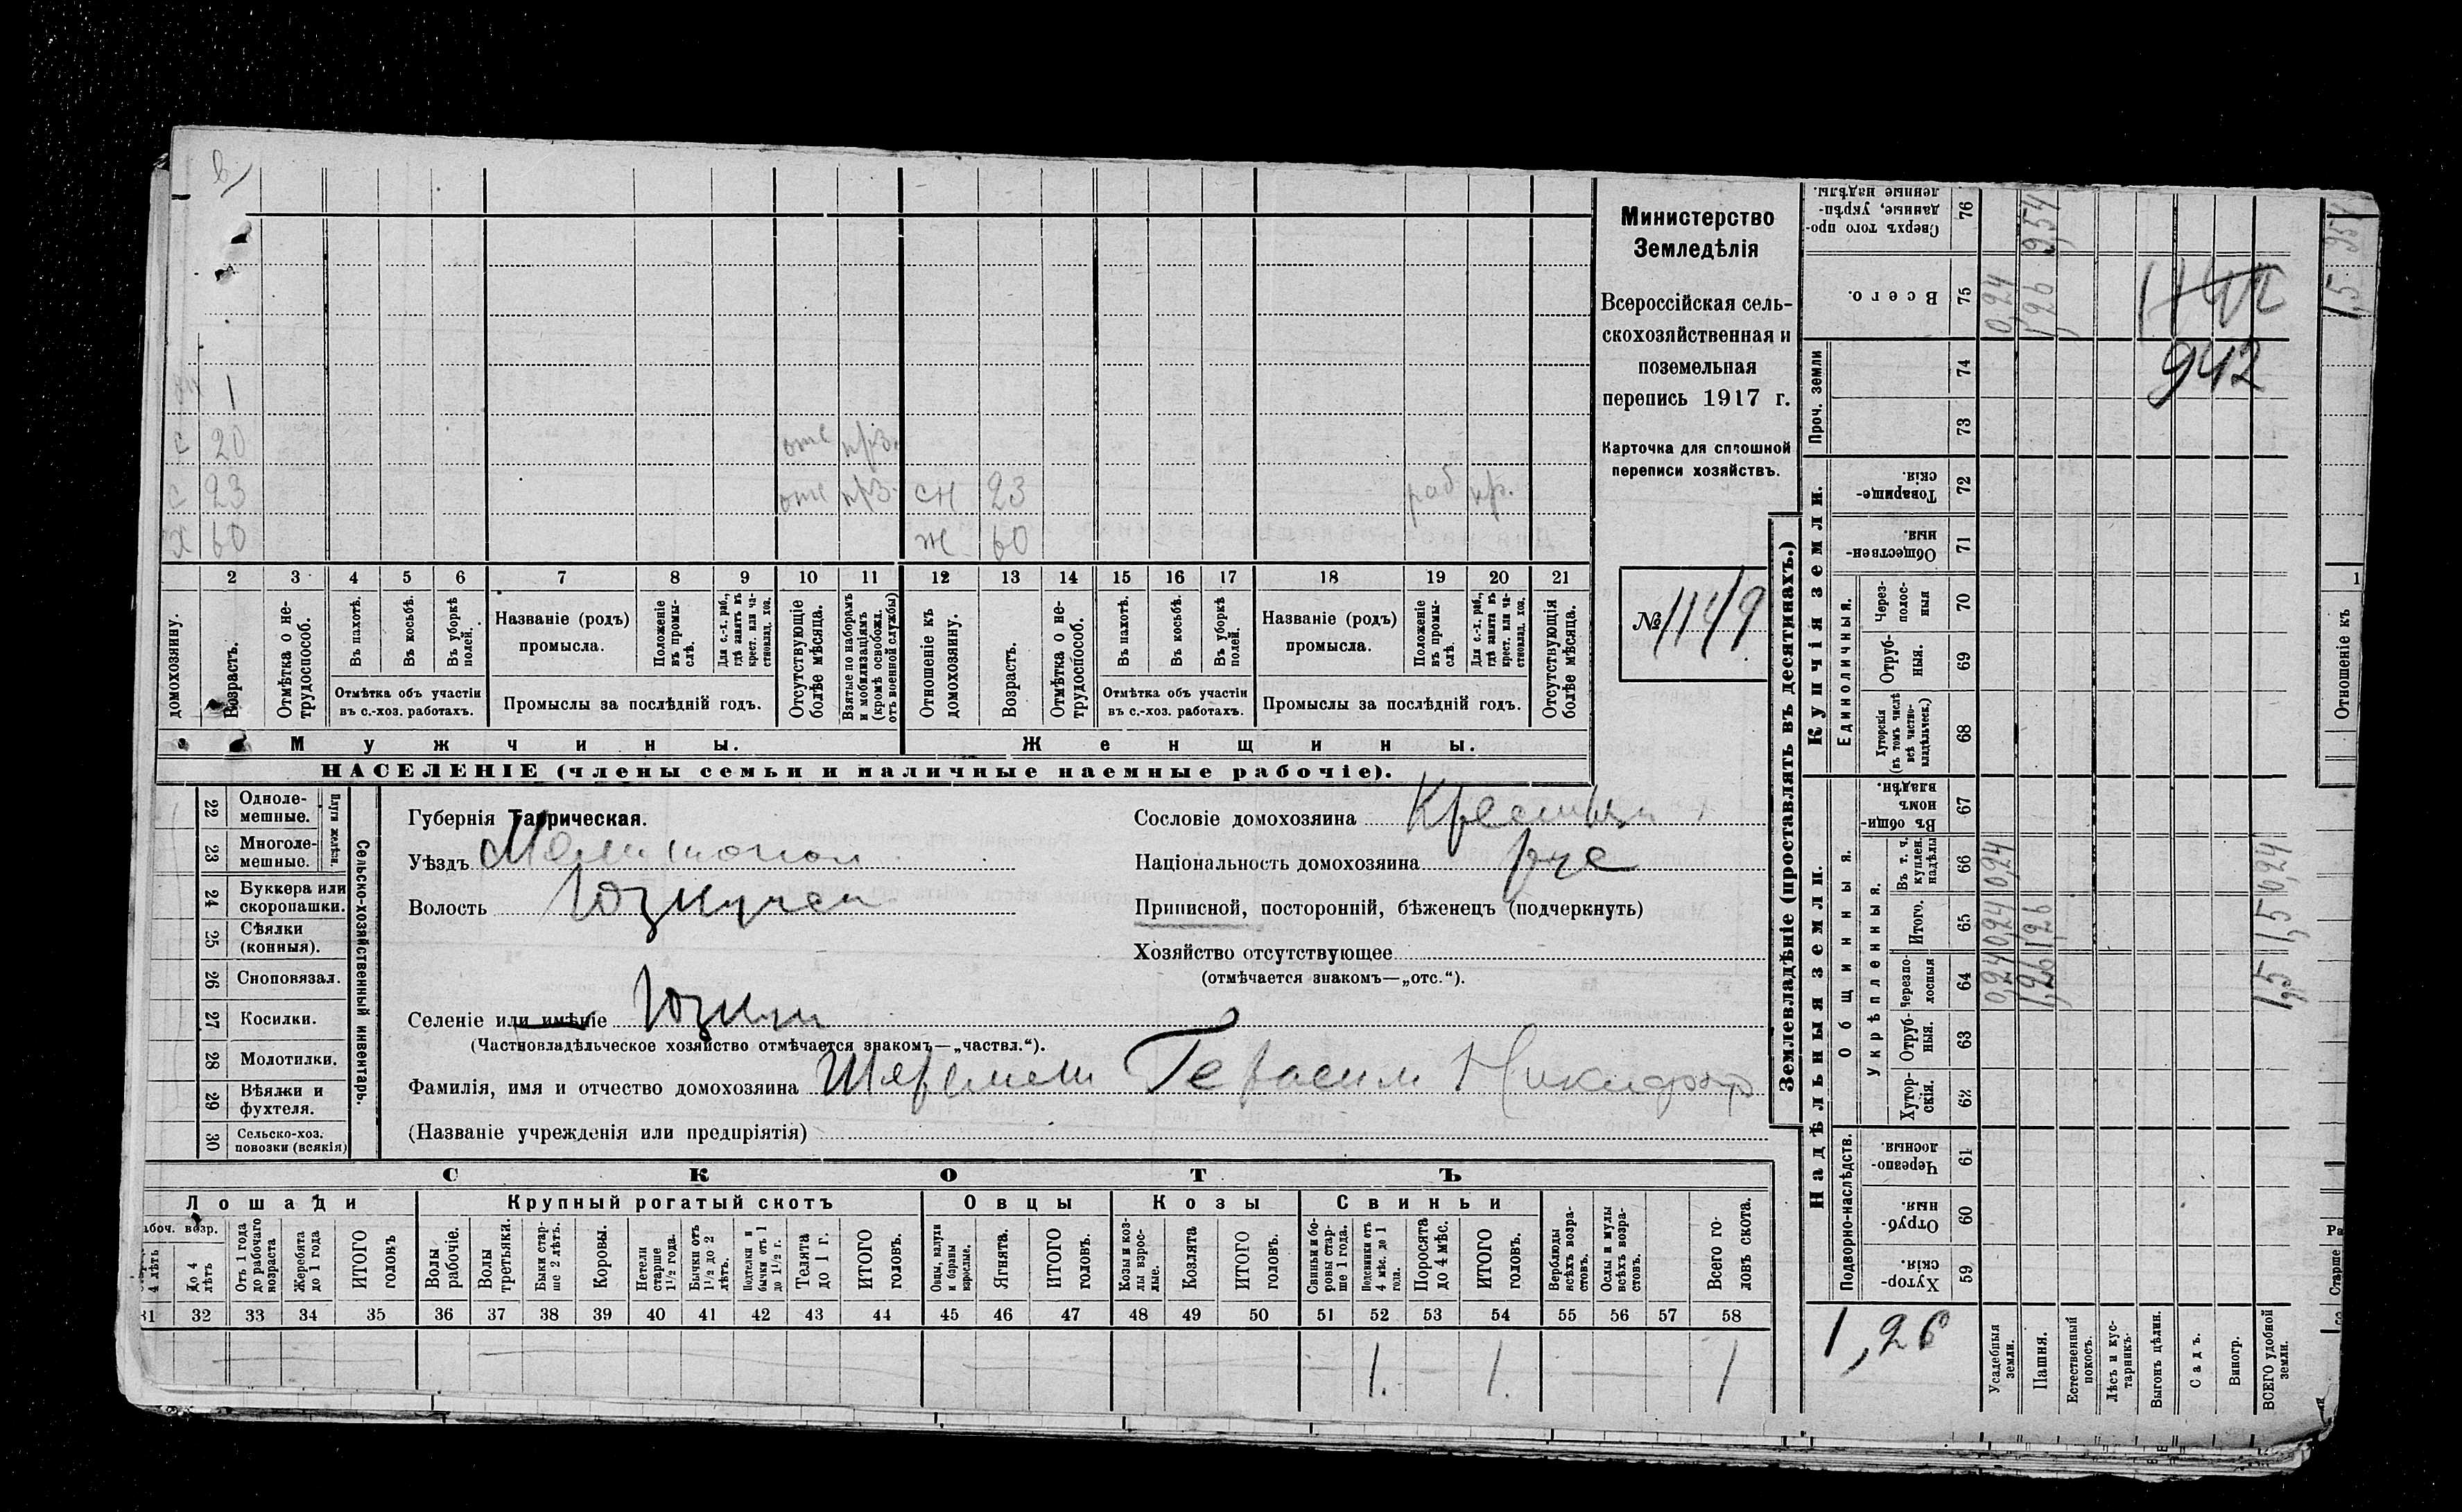 в/
1
с 20 отс прз.
с 23 отс прз. сн 23 раб кр.
х 60 ж 60
2 3 4 5 6 7 8 9 10 11 12 13 14 15 16 17 18 19 20 21
домохозяину.
Возрастъ.
Отмѣтка о не-
трудоспособ.
Въ пахотѣ.
Въ косьбѣ.
Въ уборкѣ
полей.
Отмѣтка объ участіи
въ с.-хоз. работахъ.
Названіе (родъ)
промысла.
Положеніе
въ промы-
слѣ.
Для с.-х. раб.,
гдѣ занятъ въ
крест. или ча-
стновлад. хоз.
Промыслы за послѣдній годъ.
Отсутствующіе
болѣе мѣсяца.
Взятые по наборамъ
и мобилизаціямъ
(кромѣ освобожд.
отъ военной службы)
Отношеніе къ
домохозяину.
Возрастъ.
Отмѣтка о не-
трудоспособ.
Въ пахотѣ.
Въ косьбѣ.
Въ уборкѣ
полей.
Отмѣтка объ участіи
въ с.-хоз. работахъ.
Названіе (родъ)
промысла.
Положеніе
въ промы-
слѣ.
Для с.-х. раб.,
гдѣ занята въ
крест. или ча-
стновлад. хоз.
Промыслы за послѣдній годъ.
Отсутствующія
болѣе мѣсяца.
Мужчины.
Женщины.
НАСЕЛЕНІЕ (члены семьи и наличные наемные рабочіе).
Министерство
Земледѣлія
Всероссійская сель-
скохозяйственная и
поземельная
перепись 1917 г.
Карточка для сплошной
переписи хозяйствъ.
№ 1149
22 Одноле-
мешные.
23 Многоле-
мешные.
Плуги желѣзн.
24 Буккера или
скоропашки.
25 Сѣялки
(конныя).
26 Сноповязал.
27 Косилки.
28 Молотилки.
29 Вѣялки и
фухтеля.
30 Сельско-хоз.
повозки (всякія)
Сельско-хозяйственный инвентарь.
Губернія Таврическая.
Уѣздъ Мелитопол
Волость Юзкуйск
Селеніе или имѣніе Юзкуи
(Частновладѣльческое хозяйство отмѣчается знакомъ—„частвл.“).
Фамилія, имя и отчество домохозяина Шеремет Герасим Никифор
(Названіе учрежденія или предпріятія)
Сословіе домохозяина Крестьян
Національность домохозяина рус
Приписной, посторонній, бѣженецъ (подчеркнуть)
Хозяйство отсутствующее
(отмѣчается знакомъ—„отс.“).
СКОТЪ
Лошади Крупный рогатый скотъ Овцы Козы Свиньи
4 лѣтъ
До 4
лѣтъ
Отъ 1 года
до рабочаго
возраста
Жеребята
до 1 года
ИТОГО
головъ
Волы
рабочіе.
Волы
третьяки.
Быки стар-
ше 2 лѣтъ.
Коровы.
Нетели
старше
1½ года.
Бычки отъ
1½ до 2
лѣтъ.
Подтелки и
бычки отъ 1
до 1½ г.
Телята
до 1 г.
ИТОГО
головъ.
Овцы, валухи
и бараны
взрослые.
Ягнята.
ИТОГО
головъ.
Козы и коз-
лы взрос-
лые.
Козлята
ИТОГО
головъ.
Свиньи и бо-
ровы стар-
ше 1 года.
Подсвинки отъ
4 мѣс. до 1
года.
Поросята
до 4 мѣс.
ИТОГО
головъ.
Верблюды
всѣхъ возра-
стовъ.
Ослы и мулы
всѣхъ возра-
стовъ.
Всего го-
ловъ скота.
31 32 33 34 35 36 37 38 39 40 41 42 43 44 45 46 47 48 49 50 51 52 53 54 55 56 57 58
1. 1. 1
Землевладѣніе (проставлять въ десятинахъ.)
Сверхъ того про-
данные, укрѣп-
ленные надѣлы.
76
9,54
Всего.
75
0,24
1,26
1142
942
Проч. земли
74
73
Купчія земли.
Товарище-
скія
72
Обществен-
ныя.
71
Единоличныя.
Через-
полос-
ныя
70
Отруб-
ныя.
69
Хуторскія
(въ томъ числѣ
всѣ частно-
владѣльческ.)
68
Надѣльныя земли.
Общинныя.
Въ общин-
номъ
владѣн.
67
Укрѣпленныя.
Въ т. ч.
куплен.
надѣлы
66
0,24
0,24
Итого.
65
0,24
1,26
1,5
Черезпо-
лосныя
64
0,24
1,26
1,5
Отруб-
ныя.
63
Хутор-
скія.
62
Подворно-наслѣдств.
Черезпо-
лосныя.
61
Отруб-
ныя.
60
Хутор-
скія.
59
1,26
Усадебныя
земли.
Пашня.
Естественный
покосъ.
Лѣсъ и кус-
тарникъ.
Выгонъ цѣлин.
Садъ.
Виногр.
ВСЕГО удобной
земли.
1,5
1
Отношеніе къ
Старше